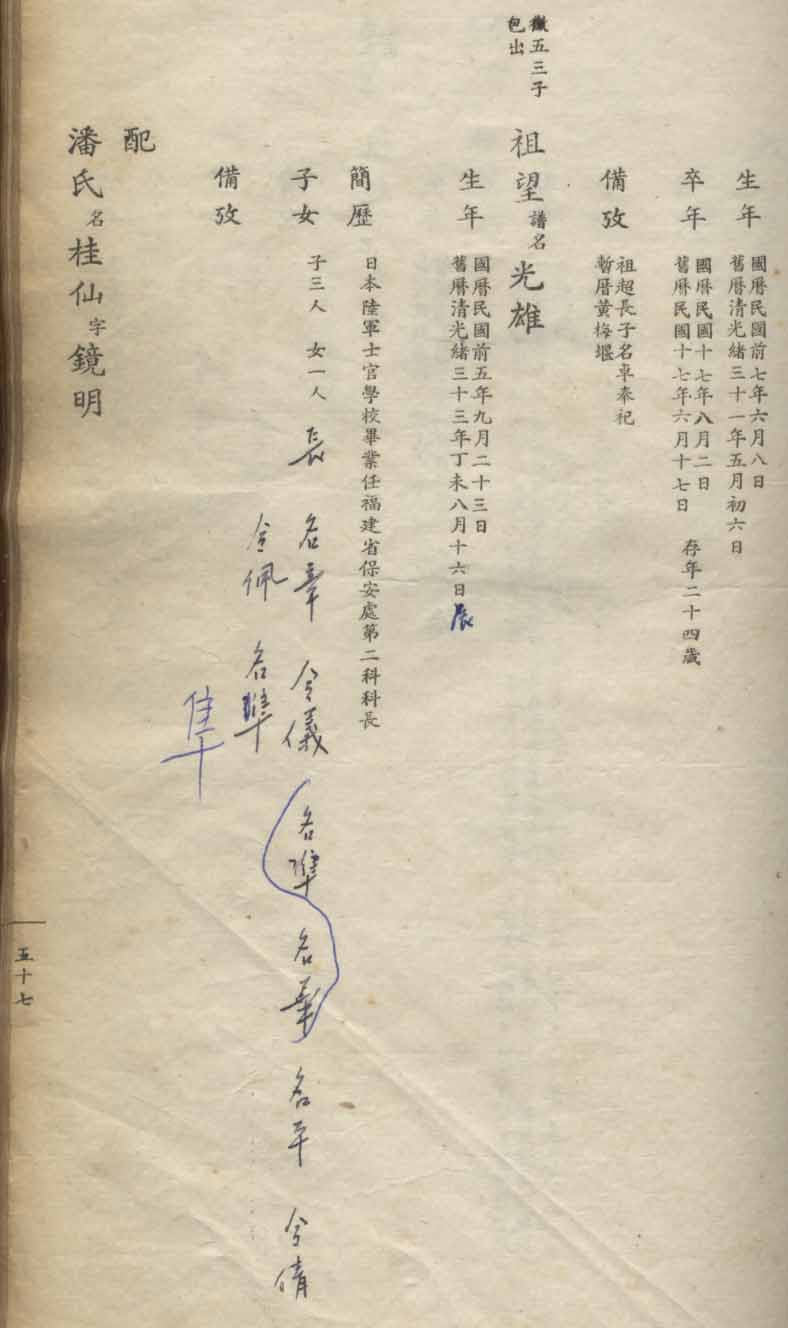 生年
國曆民國前七年六月八日
舊曆清光緒三十一年五月初六日
卒年
國曆民國十七年八月二日
舊曆民國十七年六月十七日　存年二十四歲
備攷
祖超長子名卓奉祀
暫厝黃梅堰
徵五三子
包出
祖望譜名光雄
生年
國曆民國前五年九月二十三日
舊曆清光緒三十三年丁未八月十六日辰
簡歷
日本陸軍士官學校畢業任福建省保安處第二科科長
子女
子三人　女一人　長　名章　令儀　名準　名華　名平　令倩
令佩　名準
隼
備攷
配
潘氏名桂仙字鏡明
五十七